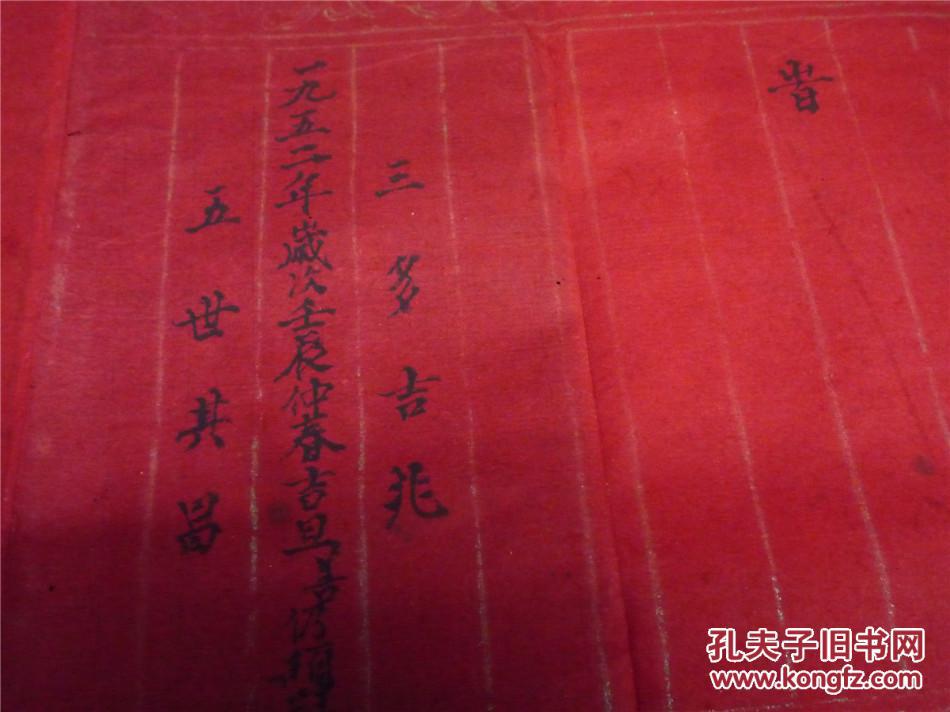 旹
三多吉兆
一九五二年歲次壬辰仲春吉旦
五世其昌
孔夫子旧书网
www.kongfz.com